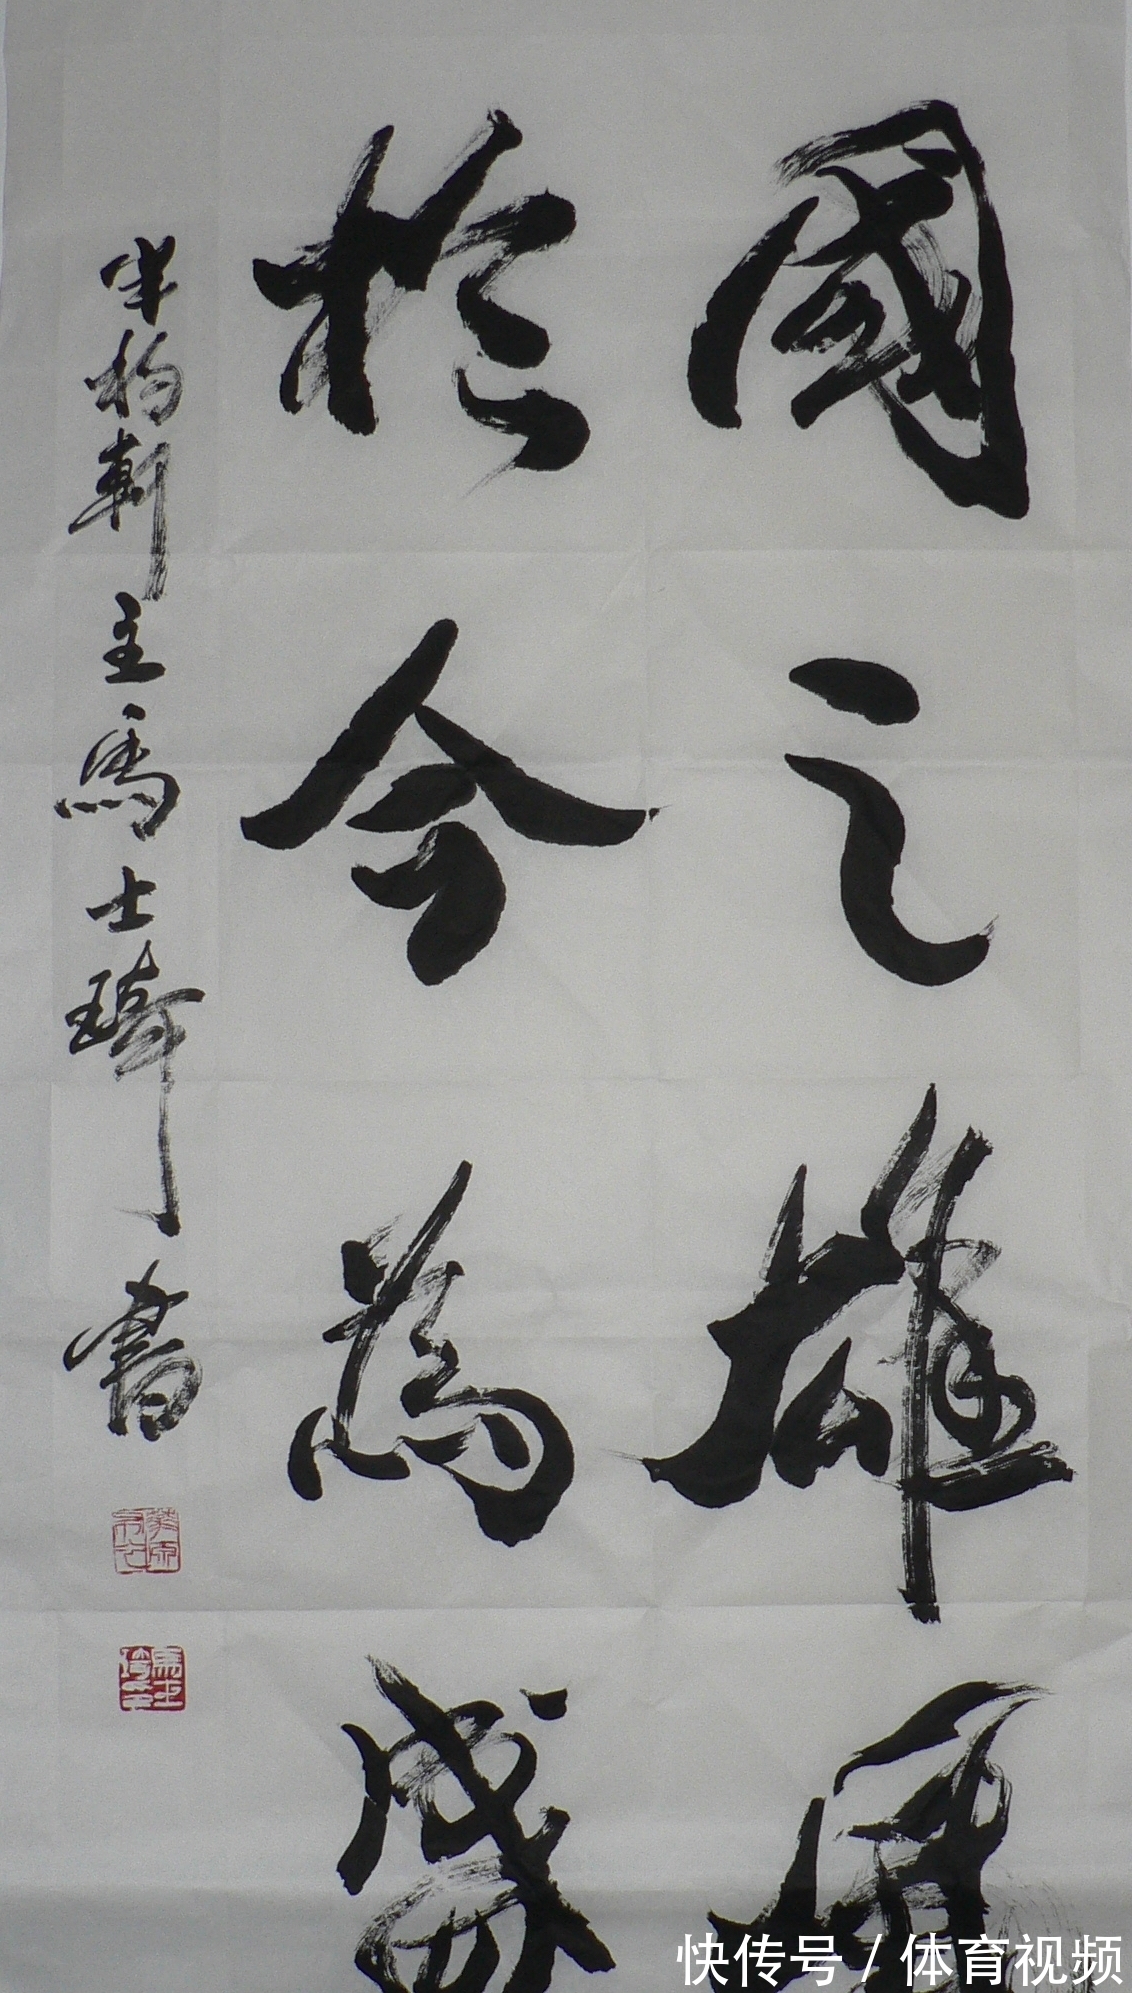 國之雄風
於今為盛
半杓軒主馬士琦書
快传号 / 体育视频